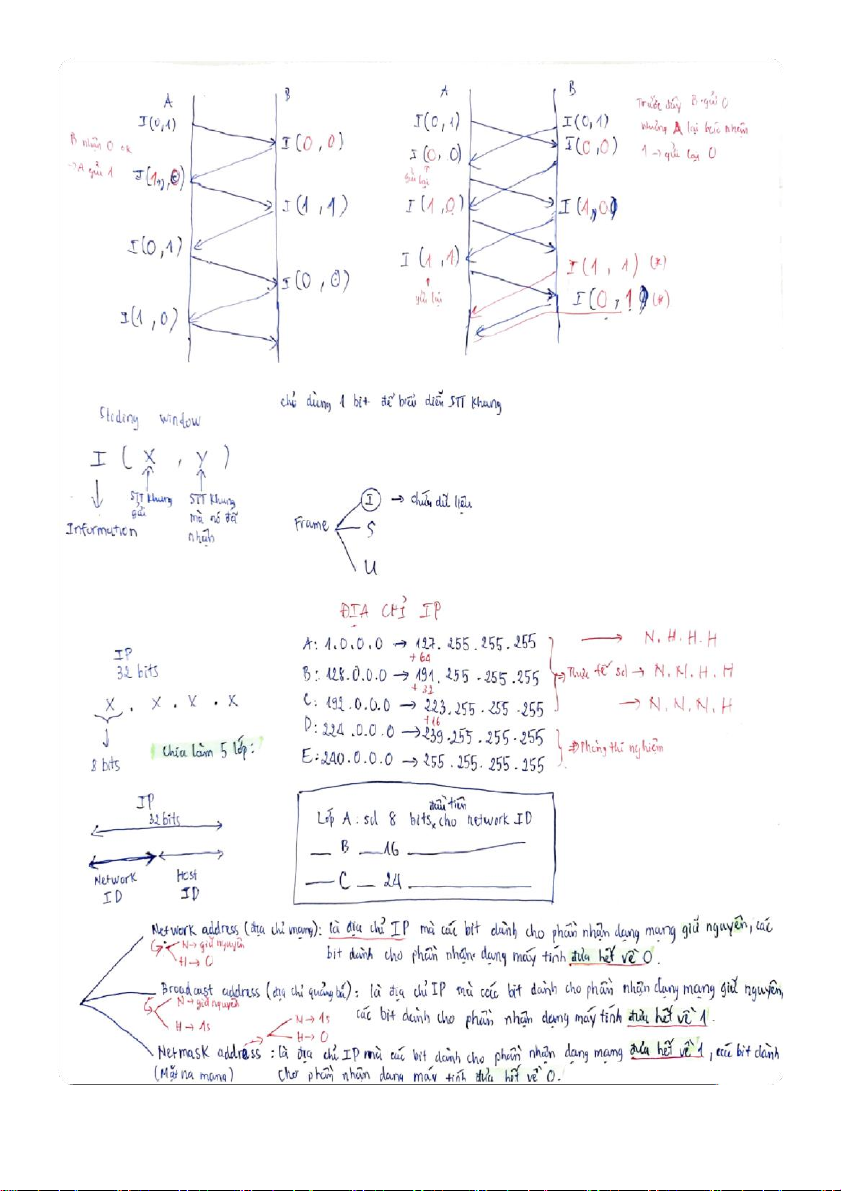 A B
I(0,1)
I(0,0)
B nhận 0 ok
→ A gửi 1
I(1,0)
I(1,1)
I(0,1)
I(0,0)
I(1,0)
A B
Trước đấy B gửi 0
nhưng A lại báo nhận
1 → gửi lại 0
I(0,1) I(0,1)
I(0,0)
I(0,0)
gửi lại
I(1,0) I(1,0)
I(1,1)
gửi lại
I(1,1) (*)
I(0,1) (*)
chỉ dùng 1 bit để biểu diễn STT khung
Sliding window
I ( X , Y )
Information
STT khung
gửi
STT khung
mà nó đã
nhận
Frame
I → chứa dữ liệu
S
U
ĐỊA CHỈ IP
IP
32 bits
X . X . X . X
8 bits
Chia làm 5 lớp:
A: 1.0.0.0 → 127.255.255.255 → N.H.H.H
+64
B: 128.0.0.0 → 191.255.255.255 → Thực tế sd → N.N.H.H
+32
C: 192.0.0.0 → 223.255.255.255 → N.N.N.H
+16
D: 224.0.0.0 → 239.255.255.255
E: 240.0.0.0 → 255.255.255.255
⇒ Phòng thí nghiệm
IP
32 bits
Network
ID
Host
ID
Lớp A: sd 8 bits đầu tiên cho network ID
— B — 16 —
— C — 24 —
Network address (địa chỉ mạng): là địa chỉ IP mà các bit dành cho phần nhận dạng mạng giữ nguyên, các
bit dành cho phần nhận dạng máy tính đưa hết về 0.
N → giữ nguyên
H → 0
Broadcast address (địa chỉ quảng bá): là địa chỉ IP mà các bit dành cho phần nhận dạng mạng giữ nguyên,
các bit dành cho phần nhận dạng máy tính đưa hết về 1.
N → giữ nguyên
H → 1s
N → 1s
H → 0
Netmask address: là địa chỉ IP mà các bit dành cho phần nhận dạng mạng đưa hết về 1, các bit dành
(Mặt nạ mạng) cho phần nhận dạng máy tính đưa hết về 0.